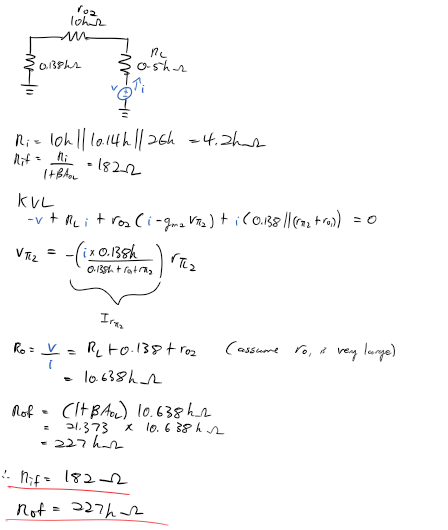 ro2
10kΩ
0.138kΩ
RL
0.5kΩ
v
i
Ri = 10k || 10.14k || 26k = 4.2kΩ
Rif = Ri / (1+βAOL) = 182Ω
KVL
-v + RL i + ro2 (i - gm2 vπ2) + i (0.138 || (rπ2 + ro1)) = 0
vπ2 = -(i × 0.138k / (0.138k + ro1 + rπ2)) rπ2
Irπ2
Ro = v/i = RL + 0.138 + ro2 (assume ro1 is very large)
= 10.638kΩ
Rof = (1+βAOL) 10.638kΩ
= 21.373 × 10.638kΩ
= 227kΩ
∴ Rif = 182Ω
Rof = 227kΩ